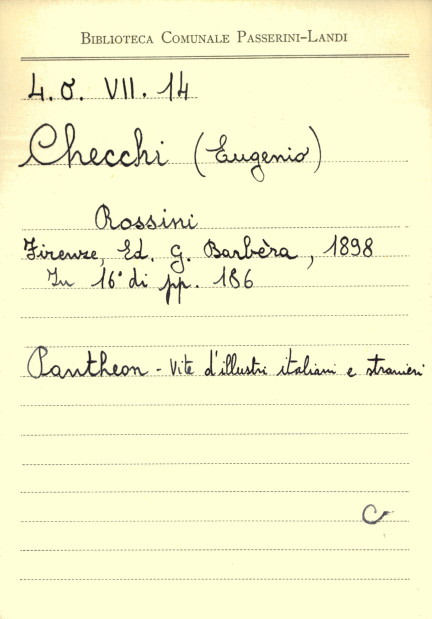 BIBLIOTECA COMUNALE PASSERINI-LANDI
4.O. VII. 14
Checchi (Eugenio)
Rossini
Firenze, Ed. G. Barbèra, 1898
In 16° di pp. 186
Pantheon - Vite d'illustri italiani e stranieri
C